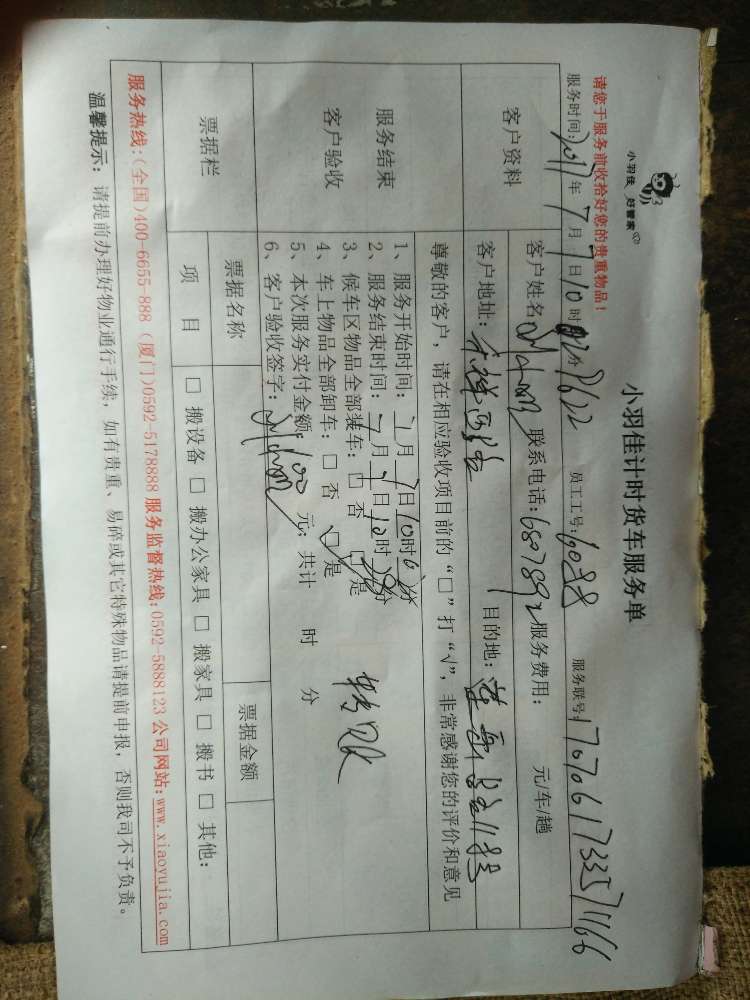 小羽佳 好管家
小羽佳计时货车服务单
请您于服务前收拾好您的贵重物品!
服务时间: 2017年7月7日10时 分 员工工号: 服务联号:
客户资料 客户姓名: 联系电话: 6807892 服务费用: 元/车/趟
客户地址: 目的地:
服务结束
客户验收
尊敬的客户,请在相应验收项目前的“□”打“√”,非常感谢您的评价和意见
1、服务开始时间: 7月7日10时 分
2、服务结束时间: 7月7日10时 分
3、候车区物品全部装车: □ 否 □ 是
4、车上物品全部卸车: □ 否 □ 是
5、本次服务实付金额: 100 元; 共计 时 分
6、客户验收签字:
转账
票据栏 票据名称 票据金额
项 目 □ 搬设备 □ 搬办公家具 □ 搬家具 □ 搬书 □ 其他:
服务热线:(全国)400-6655-888 (厦门)0592-5178888 服务监督热线:0592-5888123 公司网站:www.xiaoyujia.com
温馨提示: 请提前办理好物业通行手续,如有贵重、易碎或其它特殊物品请提前申报,否则我司不予负责。